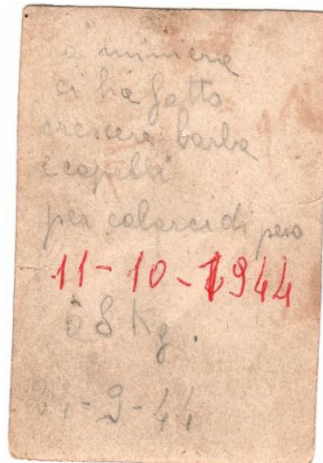 a miniera
ci ha fatto
crescere barba
e capelli
per calarci di peso
11-10-1944
58 Kg.
-9-44